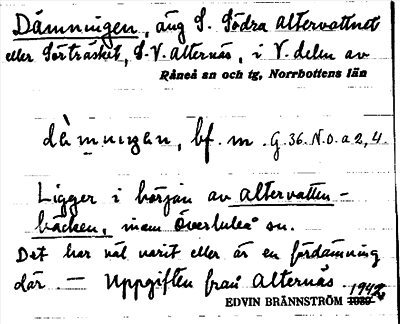 Dämningen, äng S. Södra Altervattnet
eller Sörträsket, S.V. Alternäs, i V. delen av
Råneå sn och tg, Norrbottens län
dämningan, bf. m. G. 36. N.O. a 2, 4.
Ligger i början av Altervatten-
bäcken, inom Överluleå sn.
Det har väl varit eller är en fördämning
där. — Uppgiften från Alternäs.
EDVIN BRÄNNSTRÖM 1939 1942